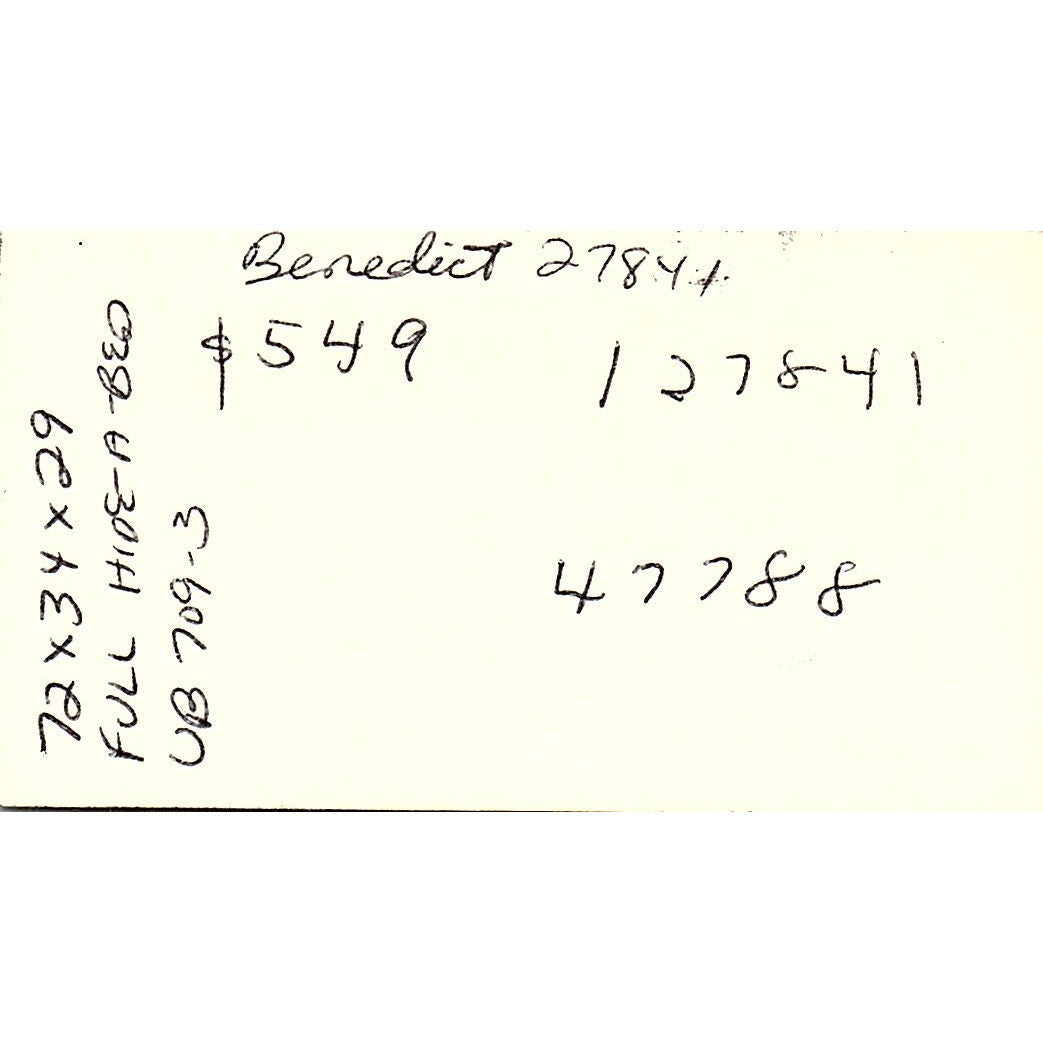 Benedict 27841
$549
127841
47788
72x34x29
FULL HIDE-A-BED
UB 709-3